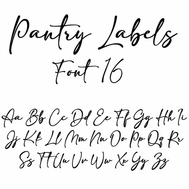 Pantry Labels
Font 16
Aa Bb Cc Dd Ee Ff Gg Hh Ii
Jj Kk Ll Mm Nn Oo Pp Qq Rr
Ss Tt Uu Vv Ww Xx Yy Zz